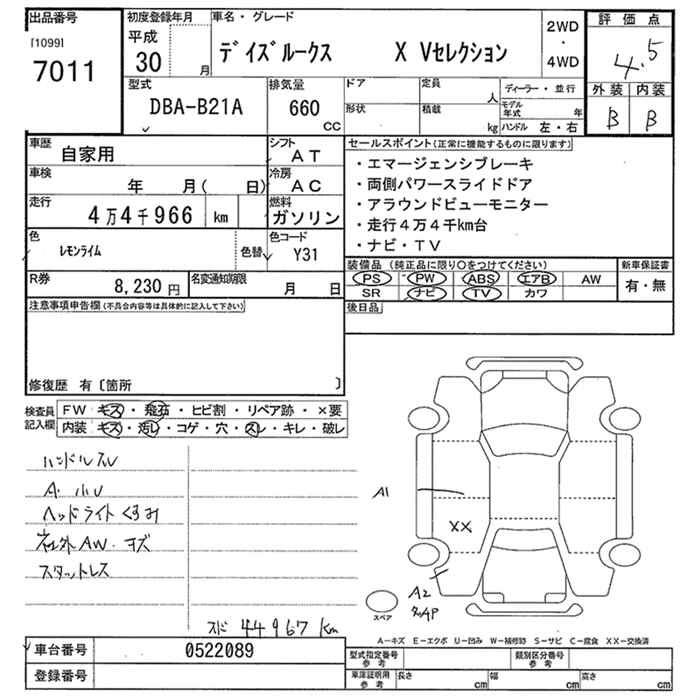 出品番号
[1099]
7011
初度登録年月
平成
30
月
車名・グレード
デイズルークス X Vセレクション
2WD
・
4WD
評価点
4.5
外装 内装
B B
型式
DBA-B21A
排気量
660
CC
ドア
形状
定員
人
積載
kg
ディーラー・並行
モデル
年式 年
ハンドル 左・右
車歴
自家用
シフト
AT
車検
年 月( 日)
冷房
AC
走行
4万4千966 km
燃料
ガソリン
色
レモンライム
色替
色コード
Y31
R券
8,230円
名変通知期限
月 日
セールスポイント(正常に機能するものに限ります)
・エマージェンシブレーキ
・両側パワースライドドア
・アラウンドビューモニター
・走行4万4千km台
・ナビ・TV
装備品(純正品に限り○をつけてください)
新車保証書
PS PW ABS エアB AW
SR ナビ TV カワ
有・無
後日品
注意事項申告欄(不具合内容等は具体的に記入して下さい)
修復歴 有〔箇所 〕
検査員
記入欄
FW キズ・飛石・ヒビ割・リペア跡・×要
内装 キズ・汚レ・コゲ・穴・スレ・キレ・破レ
ハンドルスレ
A・小U
ヘッドライトくすみ
社外AW・キズ
スタットレス
44967 km
A1
XX
A2
スペア
A-キズ E-エクボ U-凹み W-補修跡 S-サビ C-腐食 XX-交換済
車台番号
0522089
登録番号
型式指定番号
参考
類別区分番号
参考
車庫証明用
参考
長さ cm
幅 cm
高さ cm